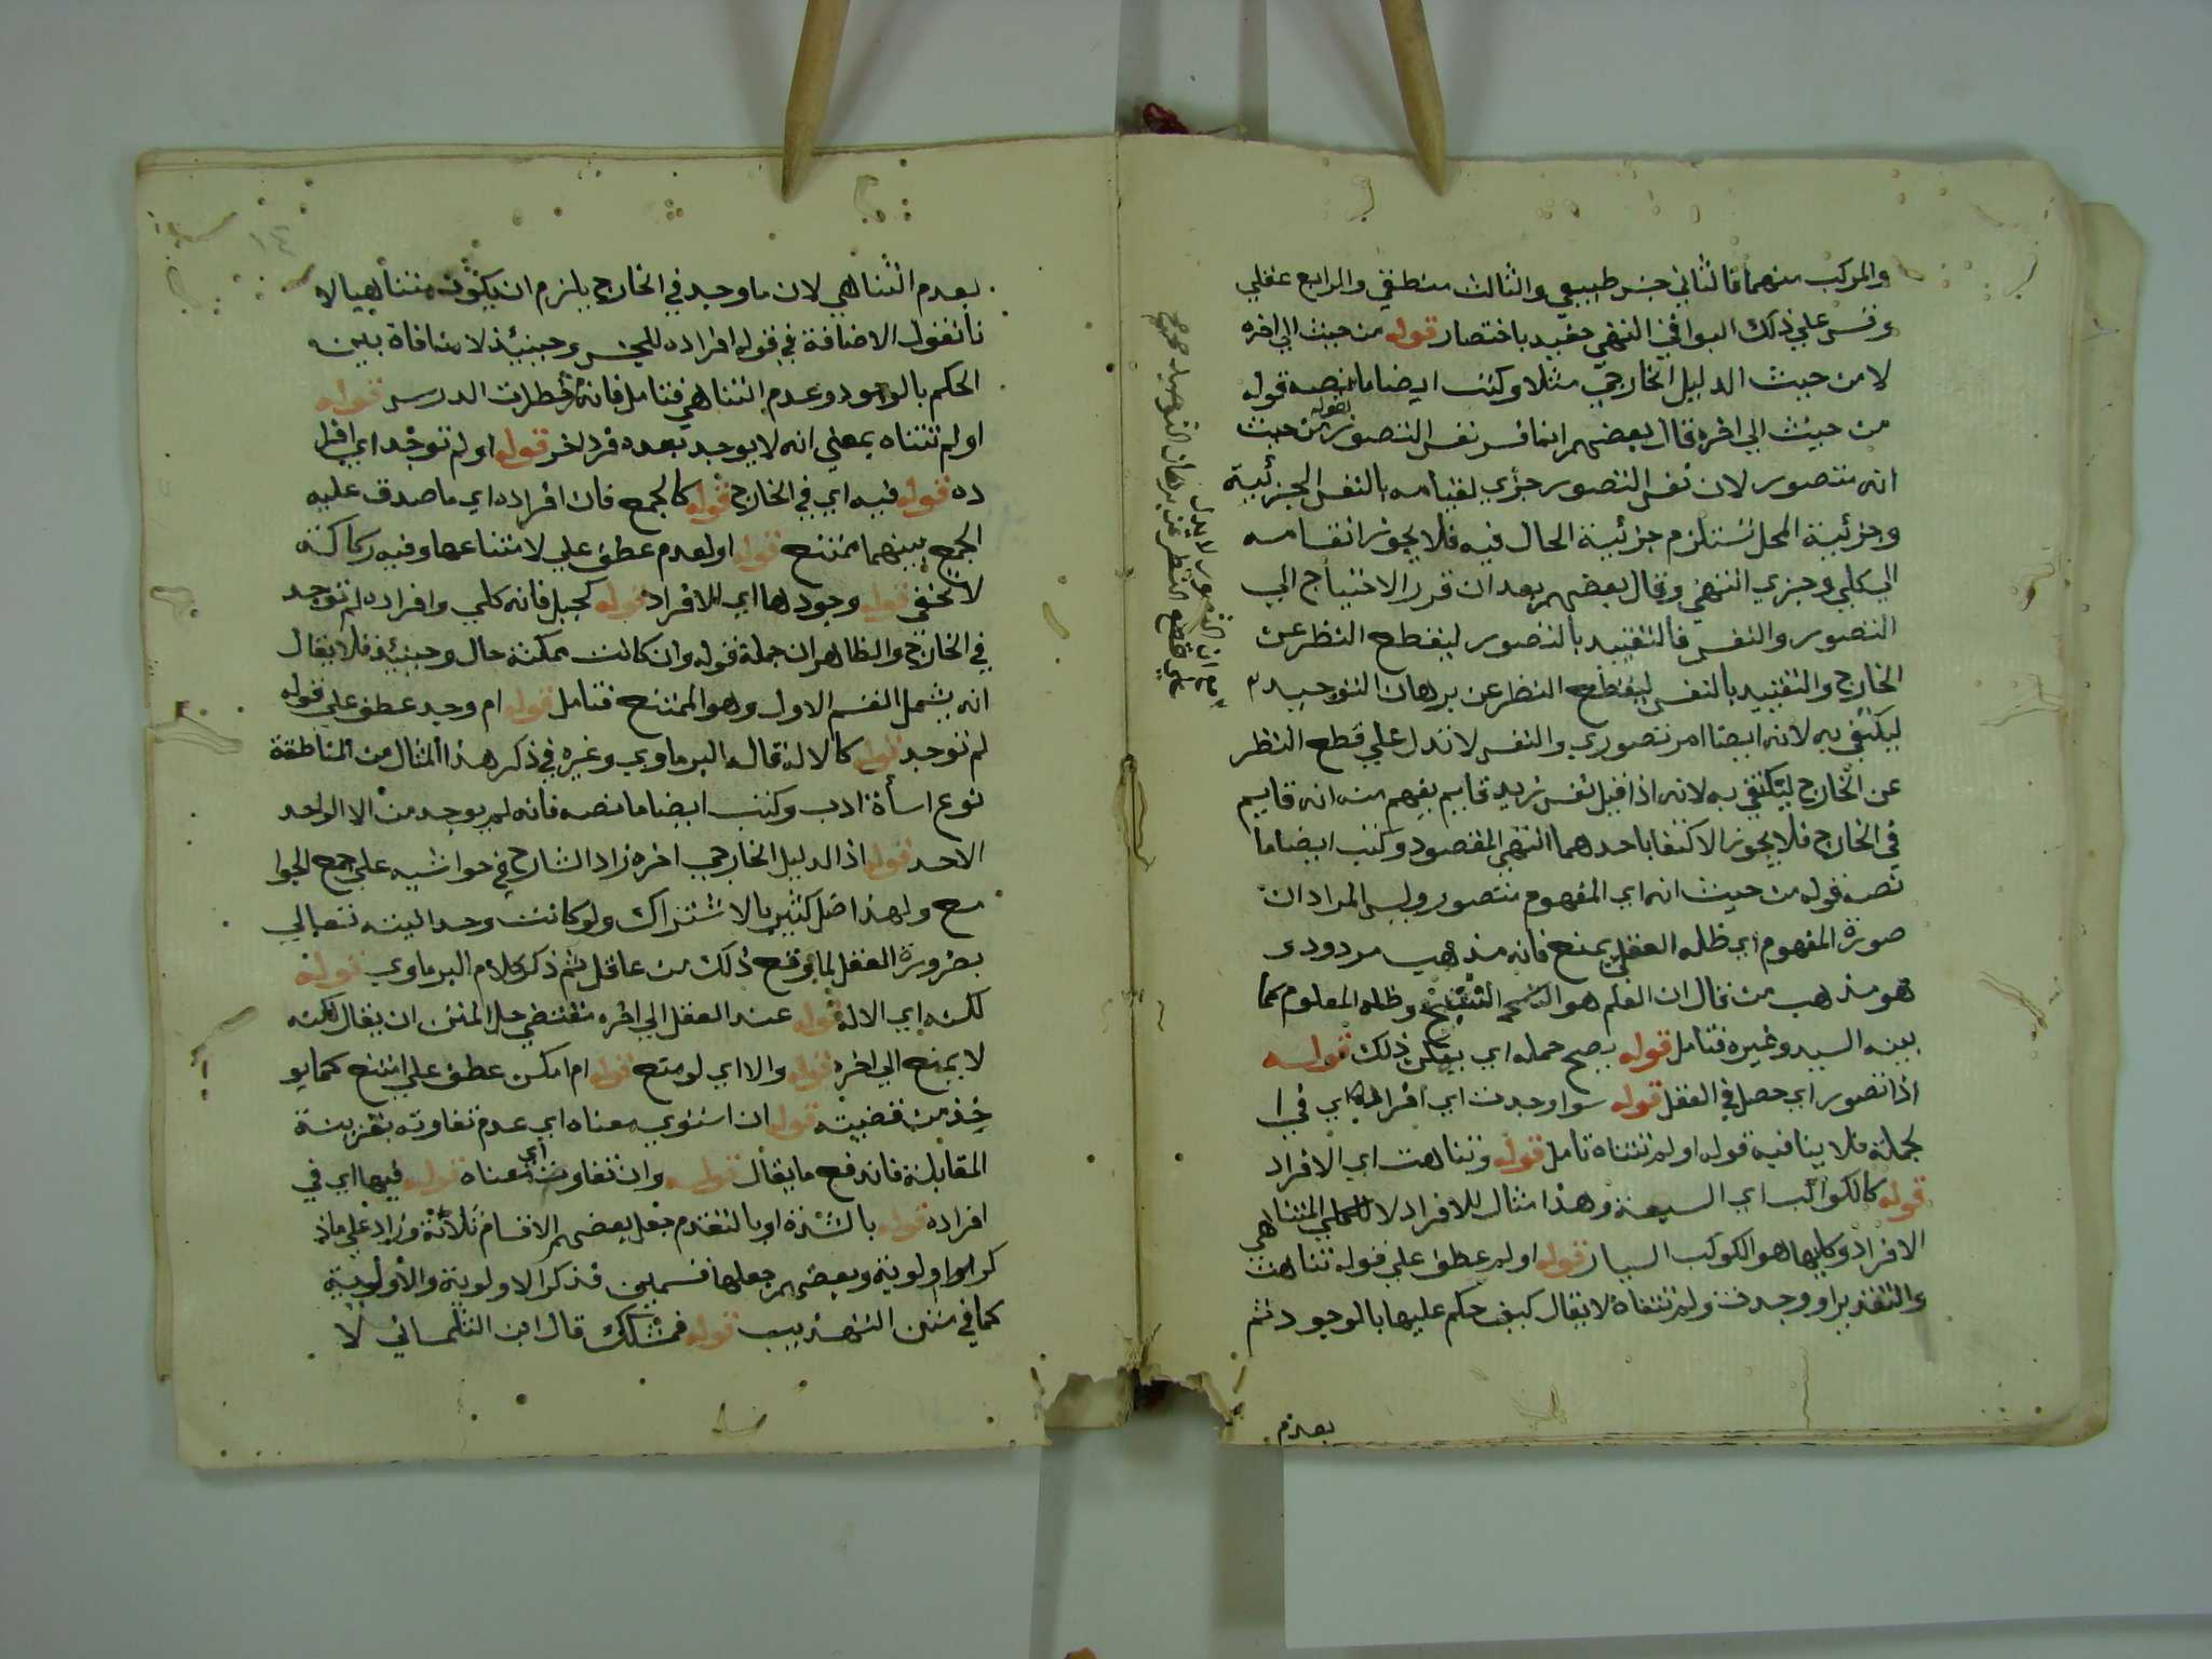 والمركب منهما فالثاني جنس طبيعي والثالث منطقي والرابع عقلي
وقس علي ذلك البواقي انتهي حفيد باختصار قوله من حيث الي اخره
لا من حيث الدليل الخارجي مثلا وكتب ايضا ما نصه قوله
من حيث الي اخره قال بعضهم انما فسر نفس التصور بقوله من حيث
انه متصور لان نفس التصور جزي لقيامه بالنفس الجزئية
وجزئية المحل تستلزم جزئية الحال فيه فلا يجوز انقسامه
الي كلي وجزي انتهي وقال بعضهم بعد ان قرر الاحتياج الي
التصور والنفس فالتقييد بالتصور ليقطع النظر عن
الخارج والتقييد بالنفس ليقطع النظر عن برهان التوحيد
ليكتفي به لانه ايضا امر تصوري والنفس لا تدل علي قطع النظر
عن الخارج ليكتفي به لانه اذا قيل نفس زيد قايم يفهم منه انه قايم
في الخارج فلا يجوز الاكتفا باحدهما انتهي المقصود وكتب ايضا ما
نصه قوله من حيث انه اي المفهوم متصور وليس المراد ان
صورة المفهوم اي ظله العقلي يمنع فانه مذهب مردود و
هو مذهب من قال ان العلم هو الشبح وظله المعلوم كما
بينه السيد وغيره فتامل قوله يصح حمله اي يمكن ذلك قوله
اذا تصور اي حصل في العقل قوله سوا وجدت اي افراده اي في ا
لجملة فلا ينافيه قوله او لم تتناه تامل قوله وتناهت اي الافراد
قوله كالكواكب اي السبعة وهذا مثال للافراد لا للكلي المتناهي
الافراد وكليها هو الكوكب السيار قوله او لم عطف علي قوله تناهت
والتقدير او وجدت ولم تتناه لا يقال كيف حكم عليها بالوجود ثم
بعدم
بعدم التناهي لان ما وجد في الخارج يلزم ان يكون متناهيا لا
نا نقول الاضافة في قوله افراده للجنس وحينئذ لا منافاة بين
الحكم بالوجود وعدم التناهي فتامل فانه من خطرات الدرس قوله
او لم تتناه بمعني انه لا يوجد بعده فرد اخر قوله او لم توجد اي افرا
ده قوله فيه اي في الخارج قوله كالجمع فان افراده اي ما صدق عليه
الجمع بينهما ممتنع قوله او لعدم عطف علي لامتناعها وفيه ركاكة
لا تخفي قوله وجودها اي للافراد قوله كجبل فانه كلي وافراده لم توجد
في الخارج والظاهر ان جملة قوله وان كانت ممكنة حال وحينئذ فلا يقال
انه يشمل القسم الاول وهو الممتنع فتامل قوله ام وجد عطف علي قوله
لم توجد قوله كالاله قال البرماوي وغيره في ذكر هذا المثال من المناطقة
نوع اساة ادب وكتب ايضا ما نصه فانه لم يوجد منه الا الواحد
الاحد قوله اذ الدليل الخارجي اخره زاد الشارح في حواشيه علي جمع الجوا
مع ولهذا ضل كثير بالاشتراك ولو كانت وحدانيته تعالي
بضرورة العقل لما وقع ذلك من عاقل ثم ذكر كلام البرماوي قوله
لكنه اي الاله قوله عند العقل الي اخره مقتضي حل المتن ان يقال لكنه
لا يمنع الي اخره قوله والا اي لو منع قوله ام امكن عطف علي امتنع كما يو
خذ من قضيته قوله ان استوي معناه اي عدم تفاوته بقرينة
المقابلة فاندفع ما يقال قوله وان تفاوت اي معناه قوله فيها اي في
افراده قوله بالشدة او بالتقدم جعل بعضهم الاقسام ثلاثة وزاد علي ما ذ
كر اولوية وبعضهم جعلها قسمين فذكر الاولوية والاولوية
كما في متن التهذيب قوله فمشكك قال ابن التلمساني لا